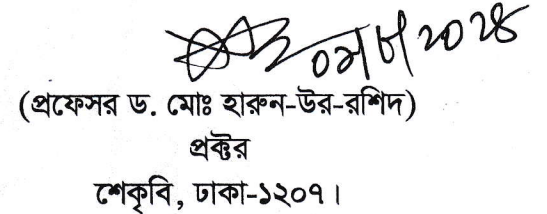 (প্রফেসর ড. মোঃ হারুন-উর-রশিদ)
প্রক্টর
শেকৃবি, ঢাকা-১২০৭।